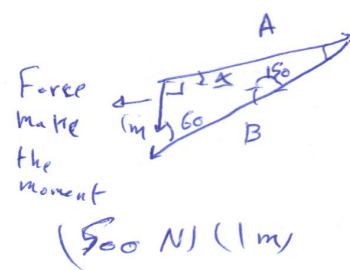 A
Force
make
the
moment
1m
60
150
B
(500 N) (1 m)